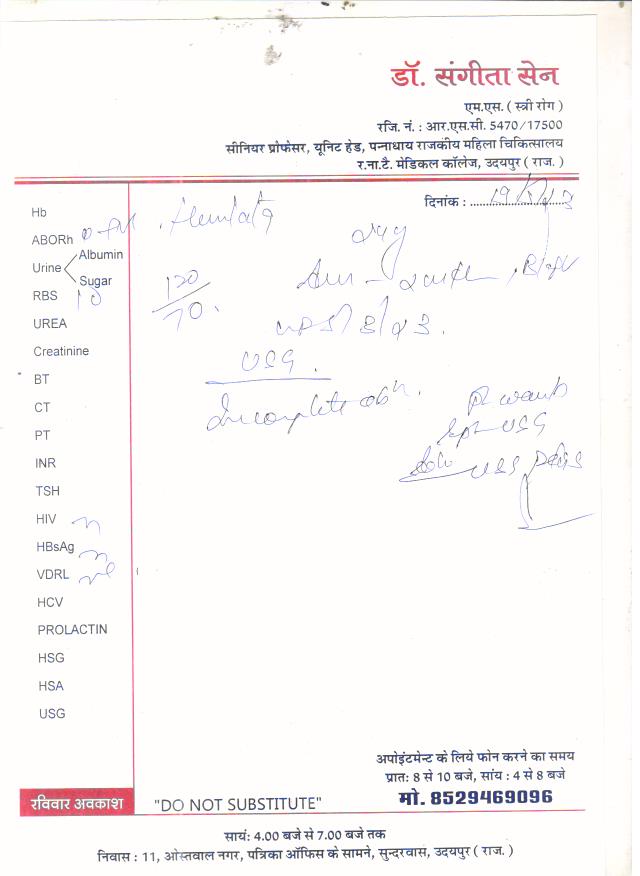 डॉ. संगीता सेन
एम.एस. ( स्त्री रोग )
रजि. नं. : आर.एस.सी. 5470/17500
सीनियर प्रोफेसर, यूनिट हेड, पन्नाधाय राजकीय महिला चिकित्सालय
र.ना.टै. मेडिकल कॉलेज, उदयपुर ( राज. )
दिनांक :
Hb
ABORh
Urine Albumin
Sugar
RBS
120/70.
UREA
Creatinine
USG.
BT
Incomplete
CT
Pt wants
PT
USG
INR
USG Pelvis
TSH
HIV
HBsAg
VDRL
HCV
PROLACTIN
HSG
HSA
USG
अपोइंटमेन्ट के लिये फोन करने का समय
प्रातः 8 से 10 बजे, सांय : 4 से 8 बजे
मो. 8529469096
रविवार अवकाश "DO NOT SUBSTITUTE"
सायं: 4.00 बजे से 7.00 बजे तक
निवास : 11, ओस्तवाल नगर, पत्रिका ऑफिस के सामने, सुन्दरवास, उदयपुर ( राज. )